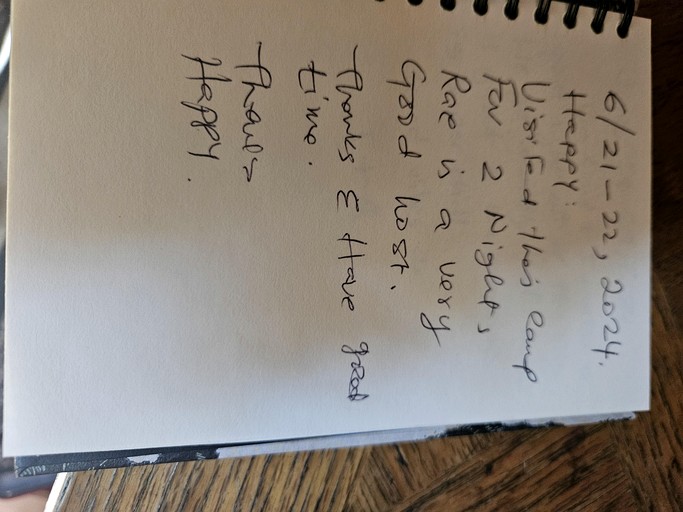 6/21-22, 2024.
Happy:
Visited this camp
For 2 Nights
Rae is a very
Good host.
Thanks & Have good
time.
Thanks
Happy.